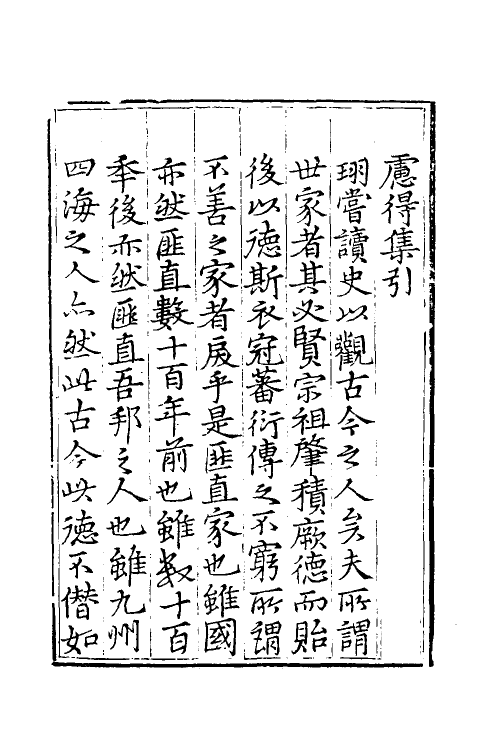 慮得集引
珝嘗讀史以觀古今之人矣夫所謂
世家者其必賢宗祖肇積厥德而貽
後以德斯衣冠蕃衍傳之不窮所謂
不善之家者戾乎是匪直家也雖國
亦然匪直數十百年前也雖数十百
年後亦然匪直吾邦之人也雖九州
四海之人亦然此古今此德不僣如